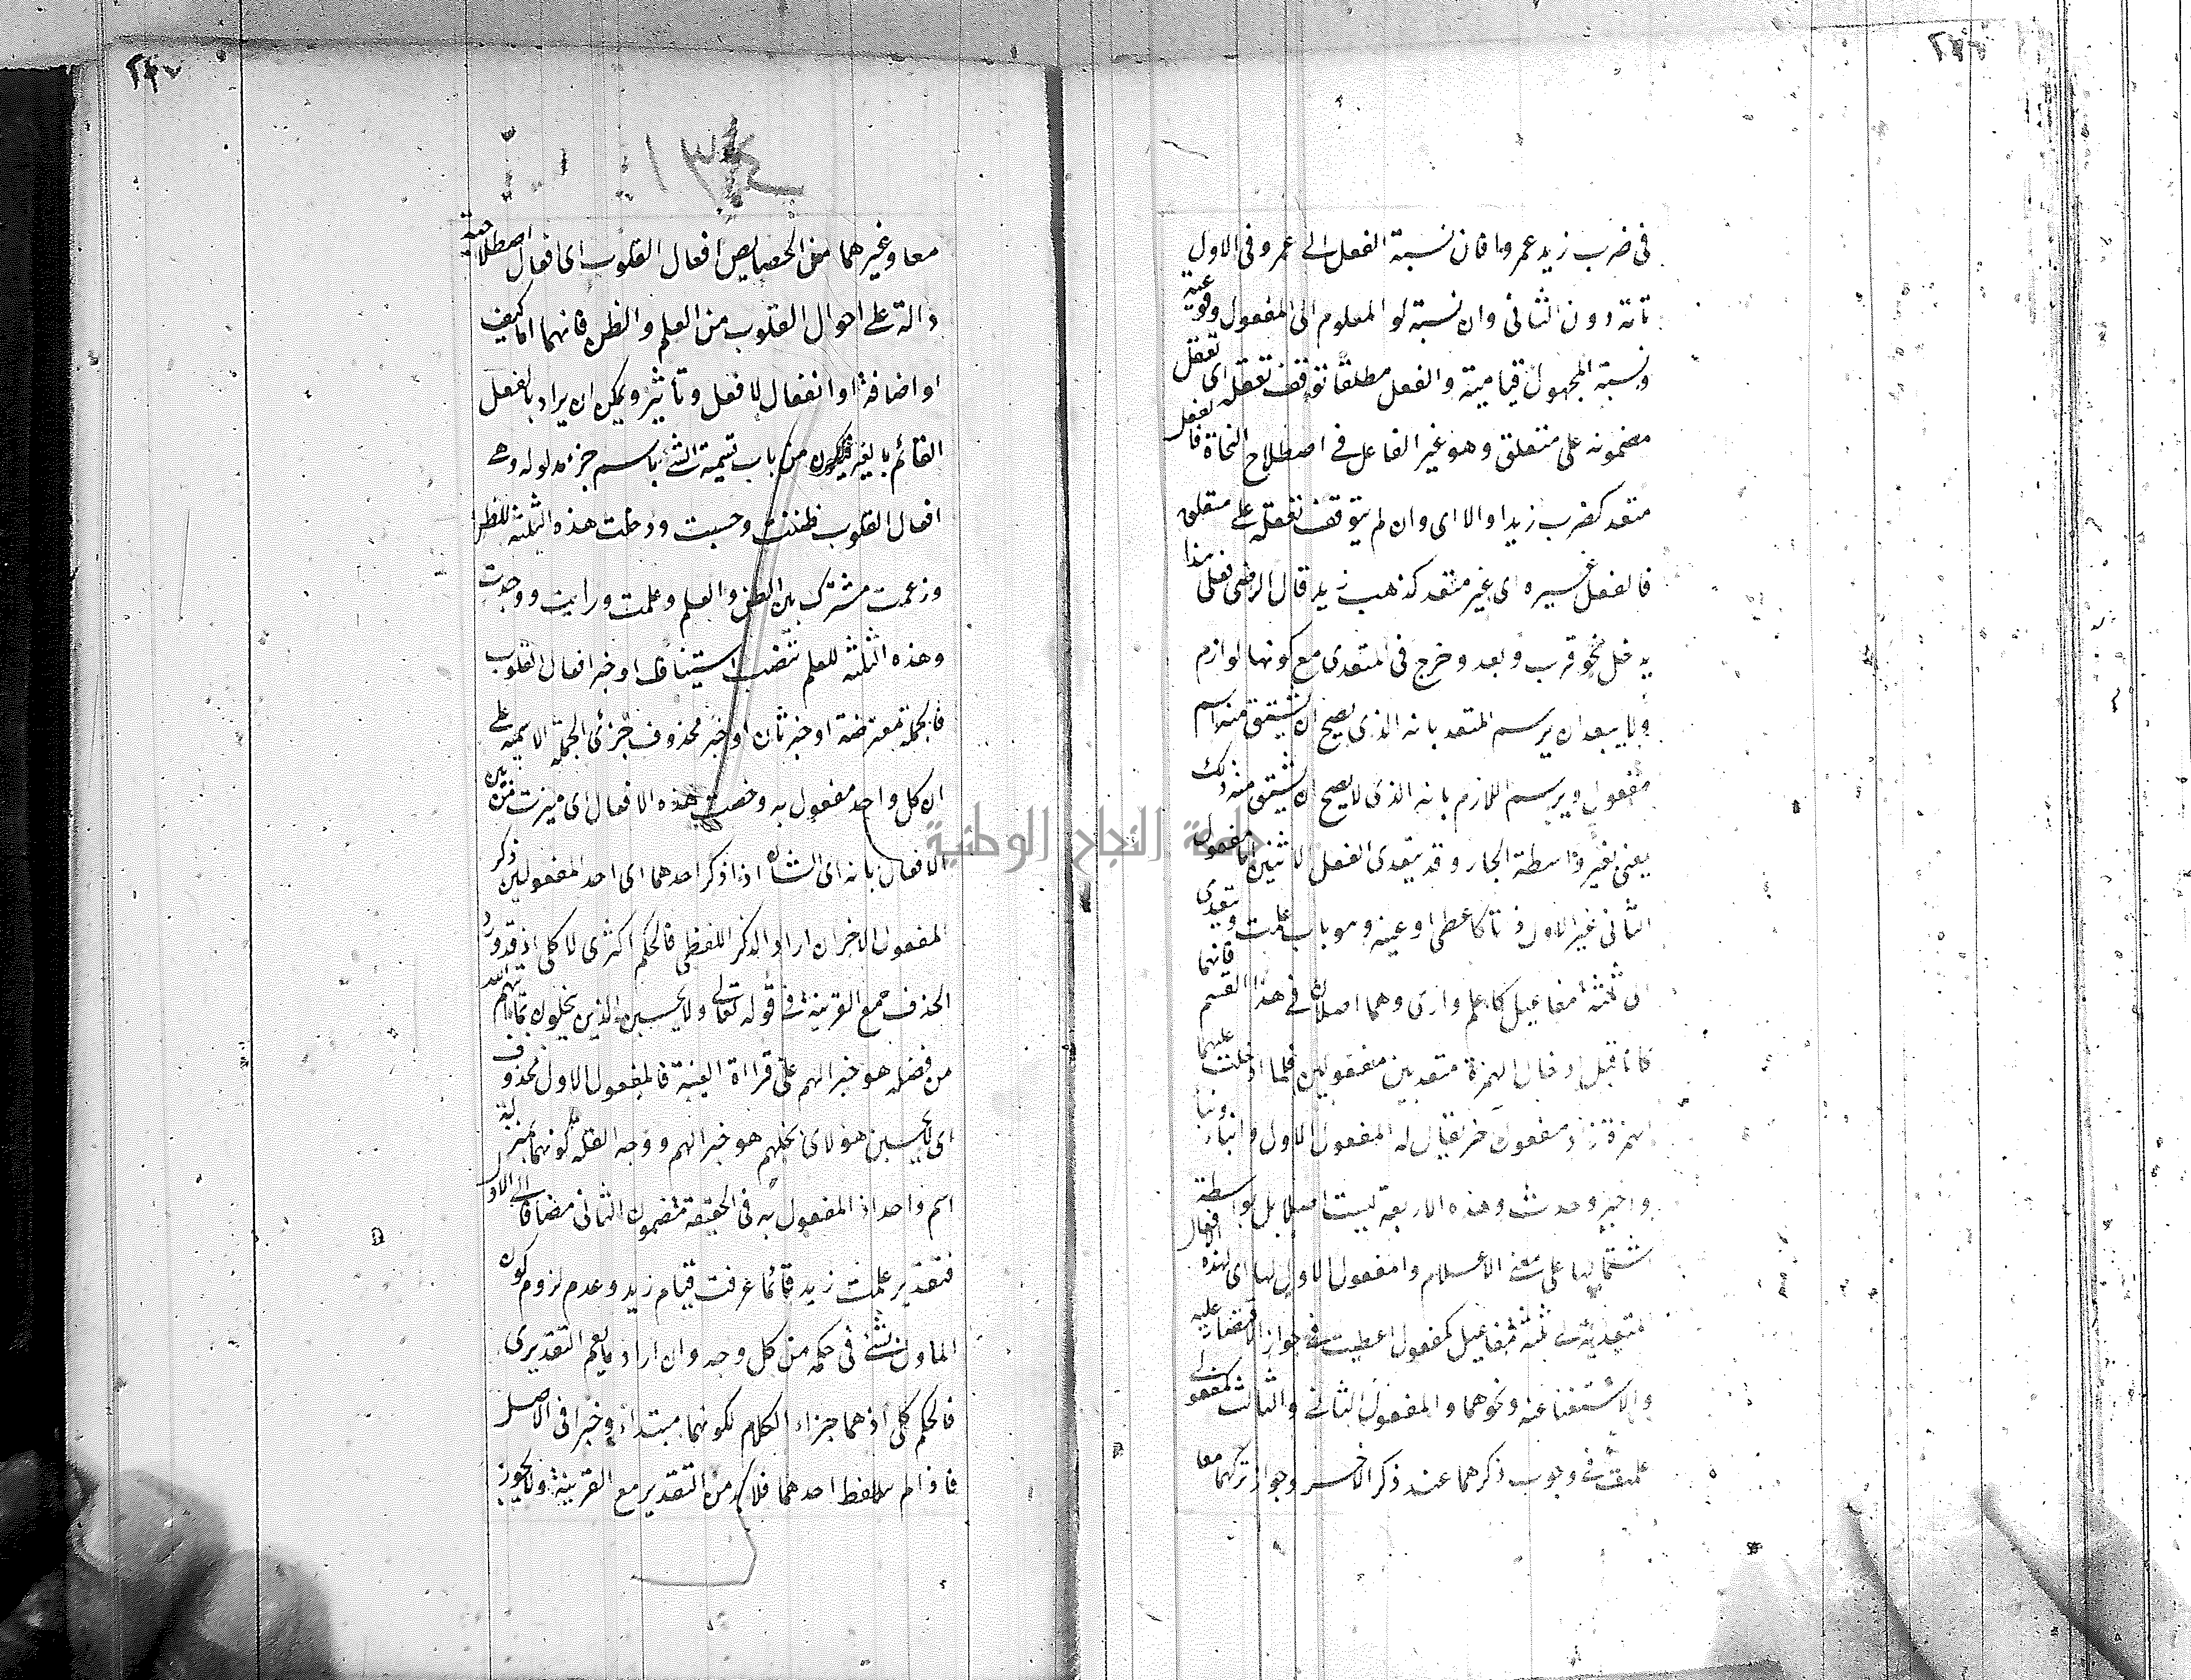 ٢٣٦
في ضرب زيد عمروا فان نسبة الفعل الى عمرو في الاول
تامة دون الثاني وان نسبة لو المعلوم الى المفعول وقوعية
ونسبة المجهول قيامية والفعل مطلقا توقف تعقله اى تعقل
مضمونه على متعلق وهو غير الفاعل في اصطلاح النحاة فالفعل
متعد كضرب زيدا والا اى وان لم يتوقف تعقله على متعلق
فالفعل غيره اى غير متعد كذهب زيد قال الرضى فعلى هذا
يدخل نحو قرب وبعد وخرج في المتعدى مع كونها لوازم
ولا يبعد ان يرسم المتعد بانه الذى يصح ان يشتق منه اسم
مفعول ويرسم اللازم بانه الذى لا يصح ان يشتق منه ذلك
يعني بغير واسطة الجار وقد يتعدى الفعل لاثنين اما مفعول
الثاني غير الاول ذاتا كاعطى او عينه وهو باب علمت ويتعدى
الى ثلثة مفاعيل كاعلم وارى وهما اصلان في هذا القسم فانهما
كانا قبل ادخال الهمزة متعديين مفعولين فلما ادخلت عليهما
الهمزة زاد مفعول آخر يقال له المفعول الاول وانباء ونبا
واخبر وحدث وهذه الاربعة ليست اصلا بل بواسطة
اشتمالها على معنى الاعلام والمفعول الاول لها اى لهذه الافعال
المتعدية الى ثلثة مفاعيل كمفعول اعطيت في جواز الاقتصار عليه
والاستغنا عنه ونحوهما والمفعول الثاني والثالث كمفعولى
علمت في وجوب ذكرهما عند ذكر الآخر وجواز تركهما معا
٢٣٧
معا وغيرهما من الخصايص افعال القلوب اى افعال اصطلاحية
دالة على احوال القلوب من العلم والظن فانهما اما كيف
او اضافة او انفعال لا فعل وتأثير ويمكن ان يراد بالفعل
القائم بالغير فيكون من باب تسمية الشئ باسم جزء مدلوله وهى
افعال القلوب ظننت وحسبت وخلت هذه الثلثة للظن
وزعمت مشترك بين الظن والعلم وعلمت ورايت ووجدت
وهذه الثلثة للعلم تنصب استينافا او خبر افعال القلوب
فالجملة معترضة او خبر ثان او خبر محذوف جزئى الجملة الاسمية على
ان كل واحد مفعول به وخصت هذه الافعال اى ميزت من بين
الافعال بانه اى الشان اذا ذكر احدهما اى احد المفعولين ذكر
المفعول الاخر ان اراد الذكر اللفظى فالحكم اكثرى لا كلى اذ قد ورد
الحذف مع القرينة في قوله تعالى ولا يحسبن الذين يبخلون بما آتاهم الله
من فضله هو خير الهم على قراءة الغيبة فالمفعول الاول محذوف
اى لا يحسبن هؤلاى بخلهم هو خير الهم ووجه القلة كونهما بمنزلة
اسم واحد اذ المفعول به في الحقيقة مضمون الثاني مضافا الى الاول
فتقدير علمت زيد قائما عرفت قيام زيد وعدم لزوم كون
الماول بشئ في حكمه من كل وجه وان اراد ما يعم التقديرى
فالحكم كلى اذ هما جزاء الكلام لكونهما مبتداء وخبرا في الاصل
فاذا لم يتلفظ احدهما فلابد من التقدير مع القرينة ولا يجوز
جامعة النجاح الوطنية